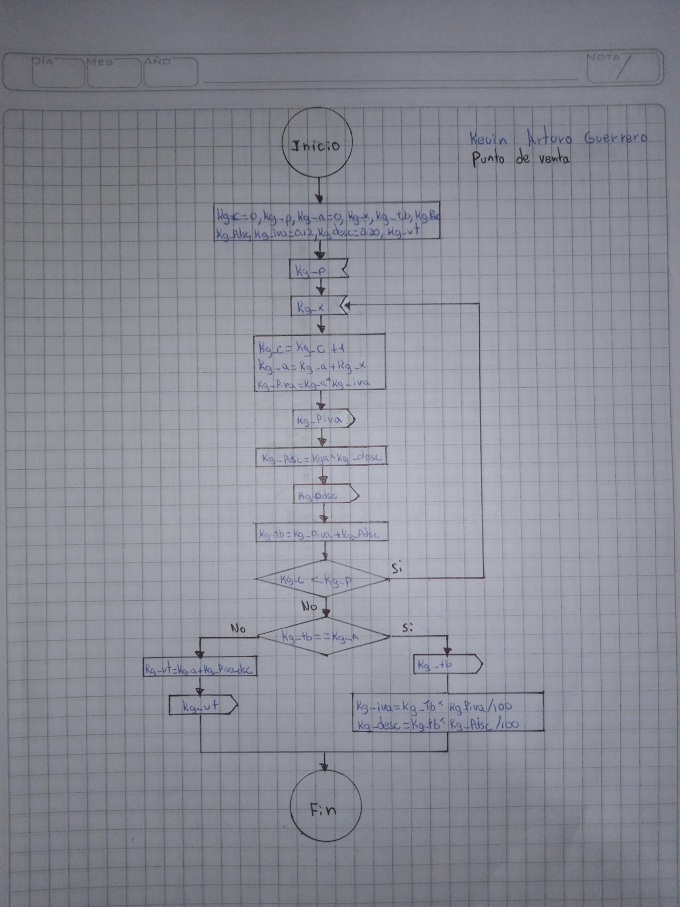 DÍA MES AÑO NOTA
Kevin Arturo Guerrero
Punto de venta
Inicio
Kg-c=0, Kg-p, Kg-a=0, Kg-x, Kg-tb,
Kg-iva=0.12, Kg-desc=0.20, Kg-vt
Kg-p
Kg-x
Kg-c=Kg-c+1
Kg-a=Kg-a+Kg-x
Kg-Piva=Kg-a*Kg-iva
Kg-Piva
Kg-Pdsc=Kga*Kg-desc
Kg pdsc
Kg-tb=Kg-Piva+Kg-Pdsc
Kg-c <Kg-p
Si
No
Kg-tb==Kg-A
No
Si
Kg-vt=Kg-a+Kg-Piva-dsc
Kg-tb
Kg-vt
Kg-iva=Kg-tb* Kg Piva/100
Kg-desc=Kg-tb* Kg-Pdsc/100
Fin